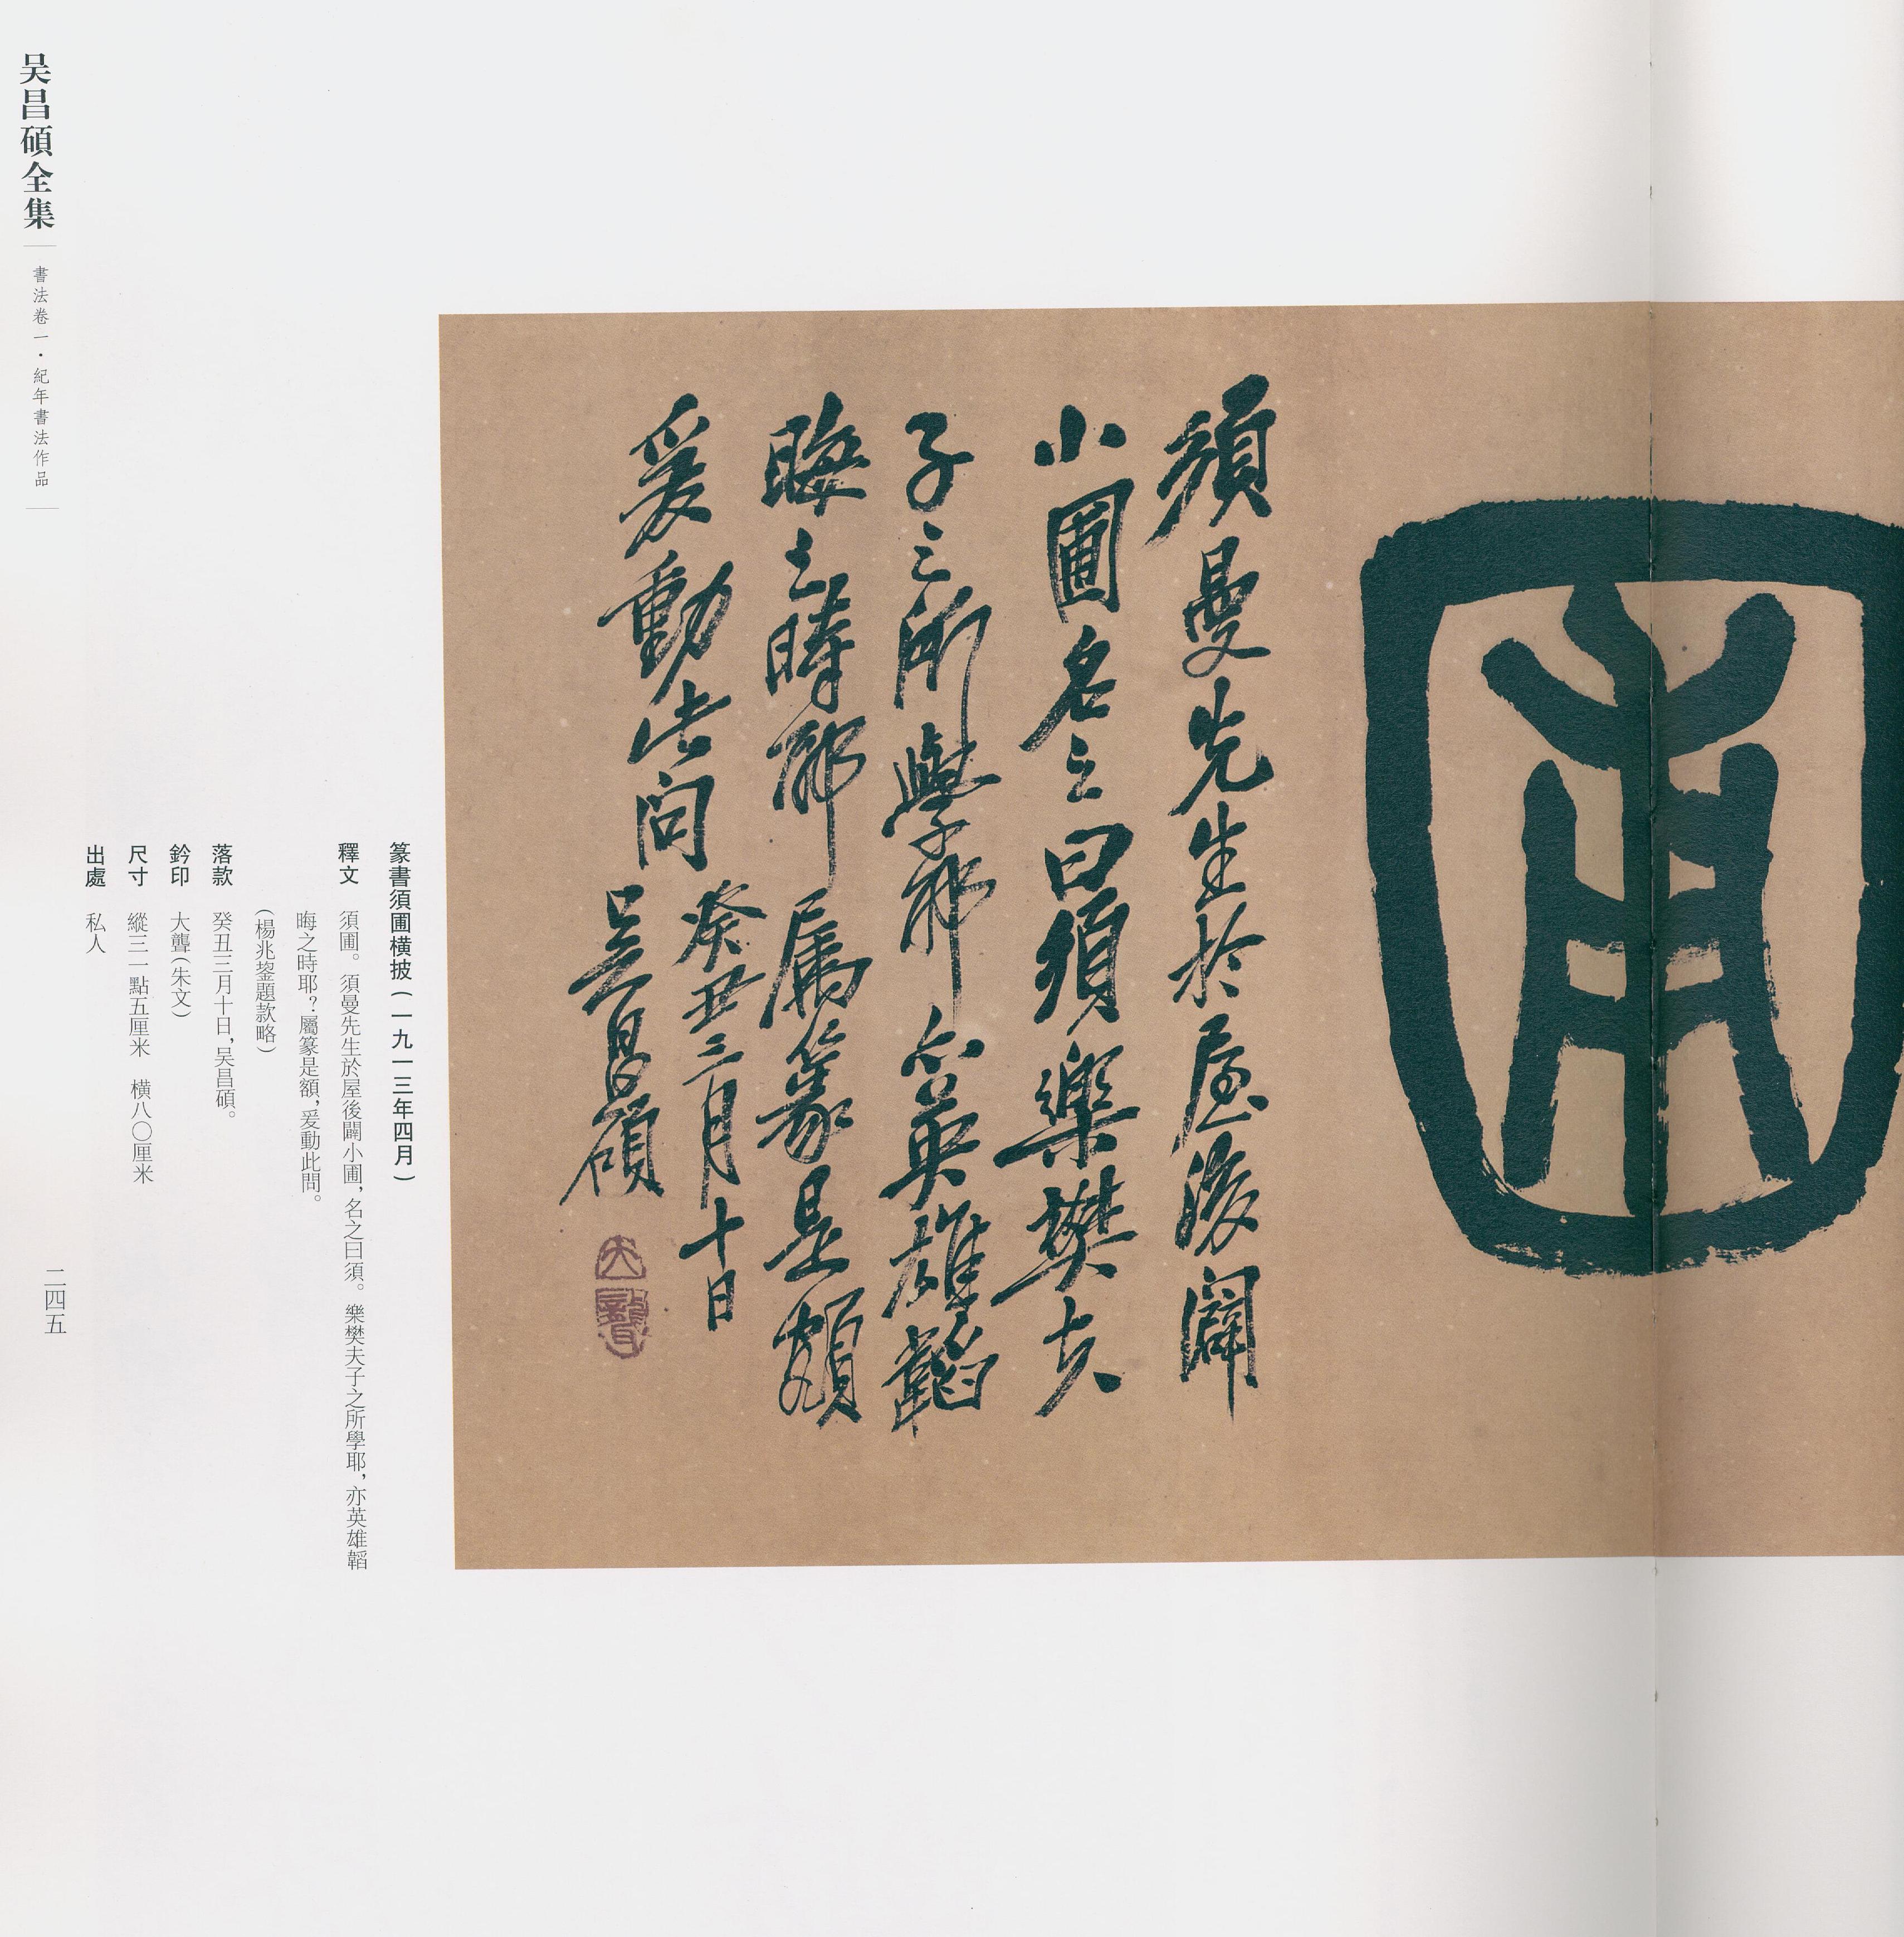 圃
須曼先生於屋後闢
小圃名之曰須樂樊夫
子之所學耶亦英雄韜
晦之時耶屬篆是額
爰動此問
癸丑三月十日
吴昌碩
大聾
篆書須圃横披(一九一三年四月)
釋文 須圃。須曼先生於屋後闢小圃,名之曰須。樂樊夫子之所學耶,亦英雄韜
晦之時耶?屬篆是額,爰動此問。
(楊兆鋆題款略)
落款 癸丑三月十日,吴昌碩。
鈐印 大聾(朱文)
尺寸 縱三一點五厘米 横八〇厘米
出處 私人
吴昌碩全集
書法卷一·紀年書法作品
二四五